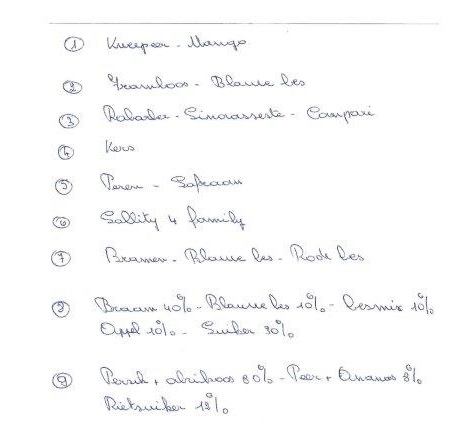 ① Kweeper - Mango
② Framboos - Blauwe bes
③ Rabarber - Sinaasseste - Campari
④ Kers
⑤ Peren - Safraan
⑥ Sallity 4 family
⑦ Bramen - Blauwe bes - Rode bes
⑧ Braam 40% - Blauwe bes 10% - besmix 10%
Appel 10% - Suiker 30%
⑨ Persik + abrikoos 80% - Peer + Ananas 8%
Rietsuiker 12%